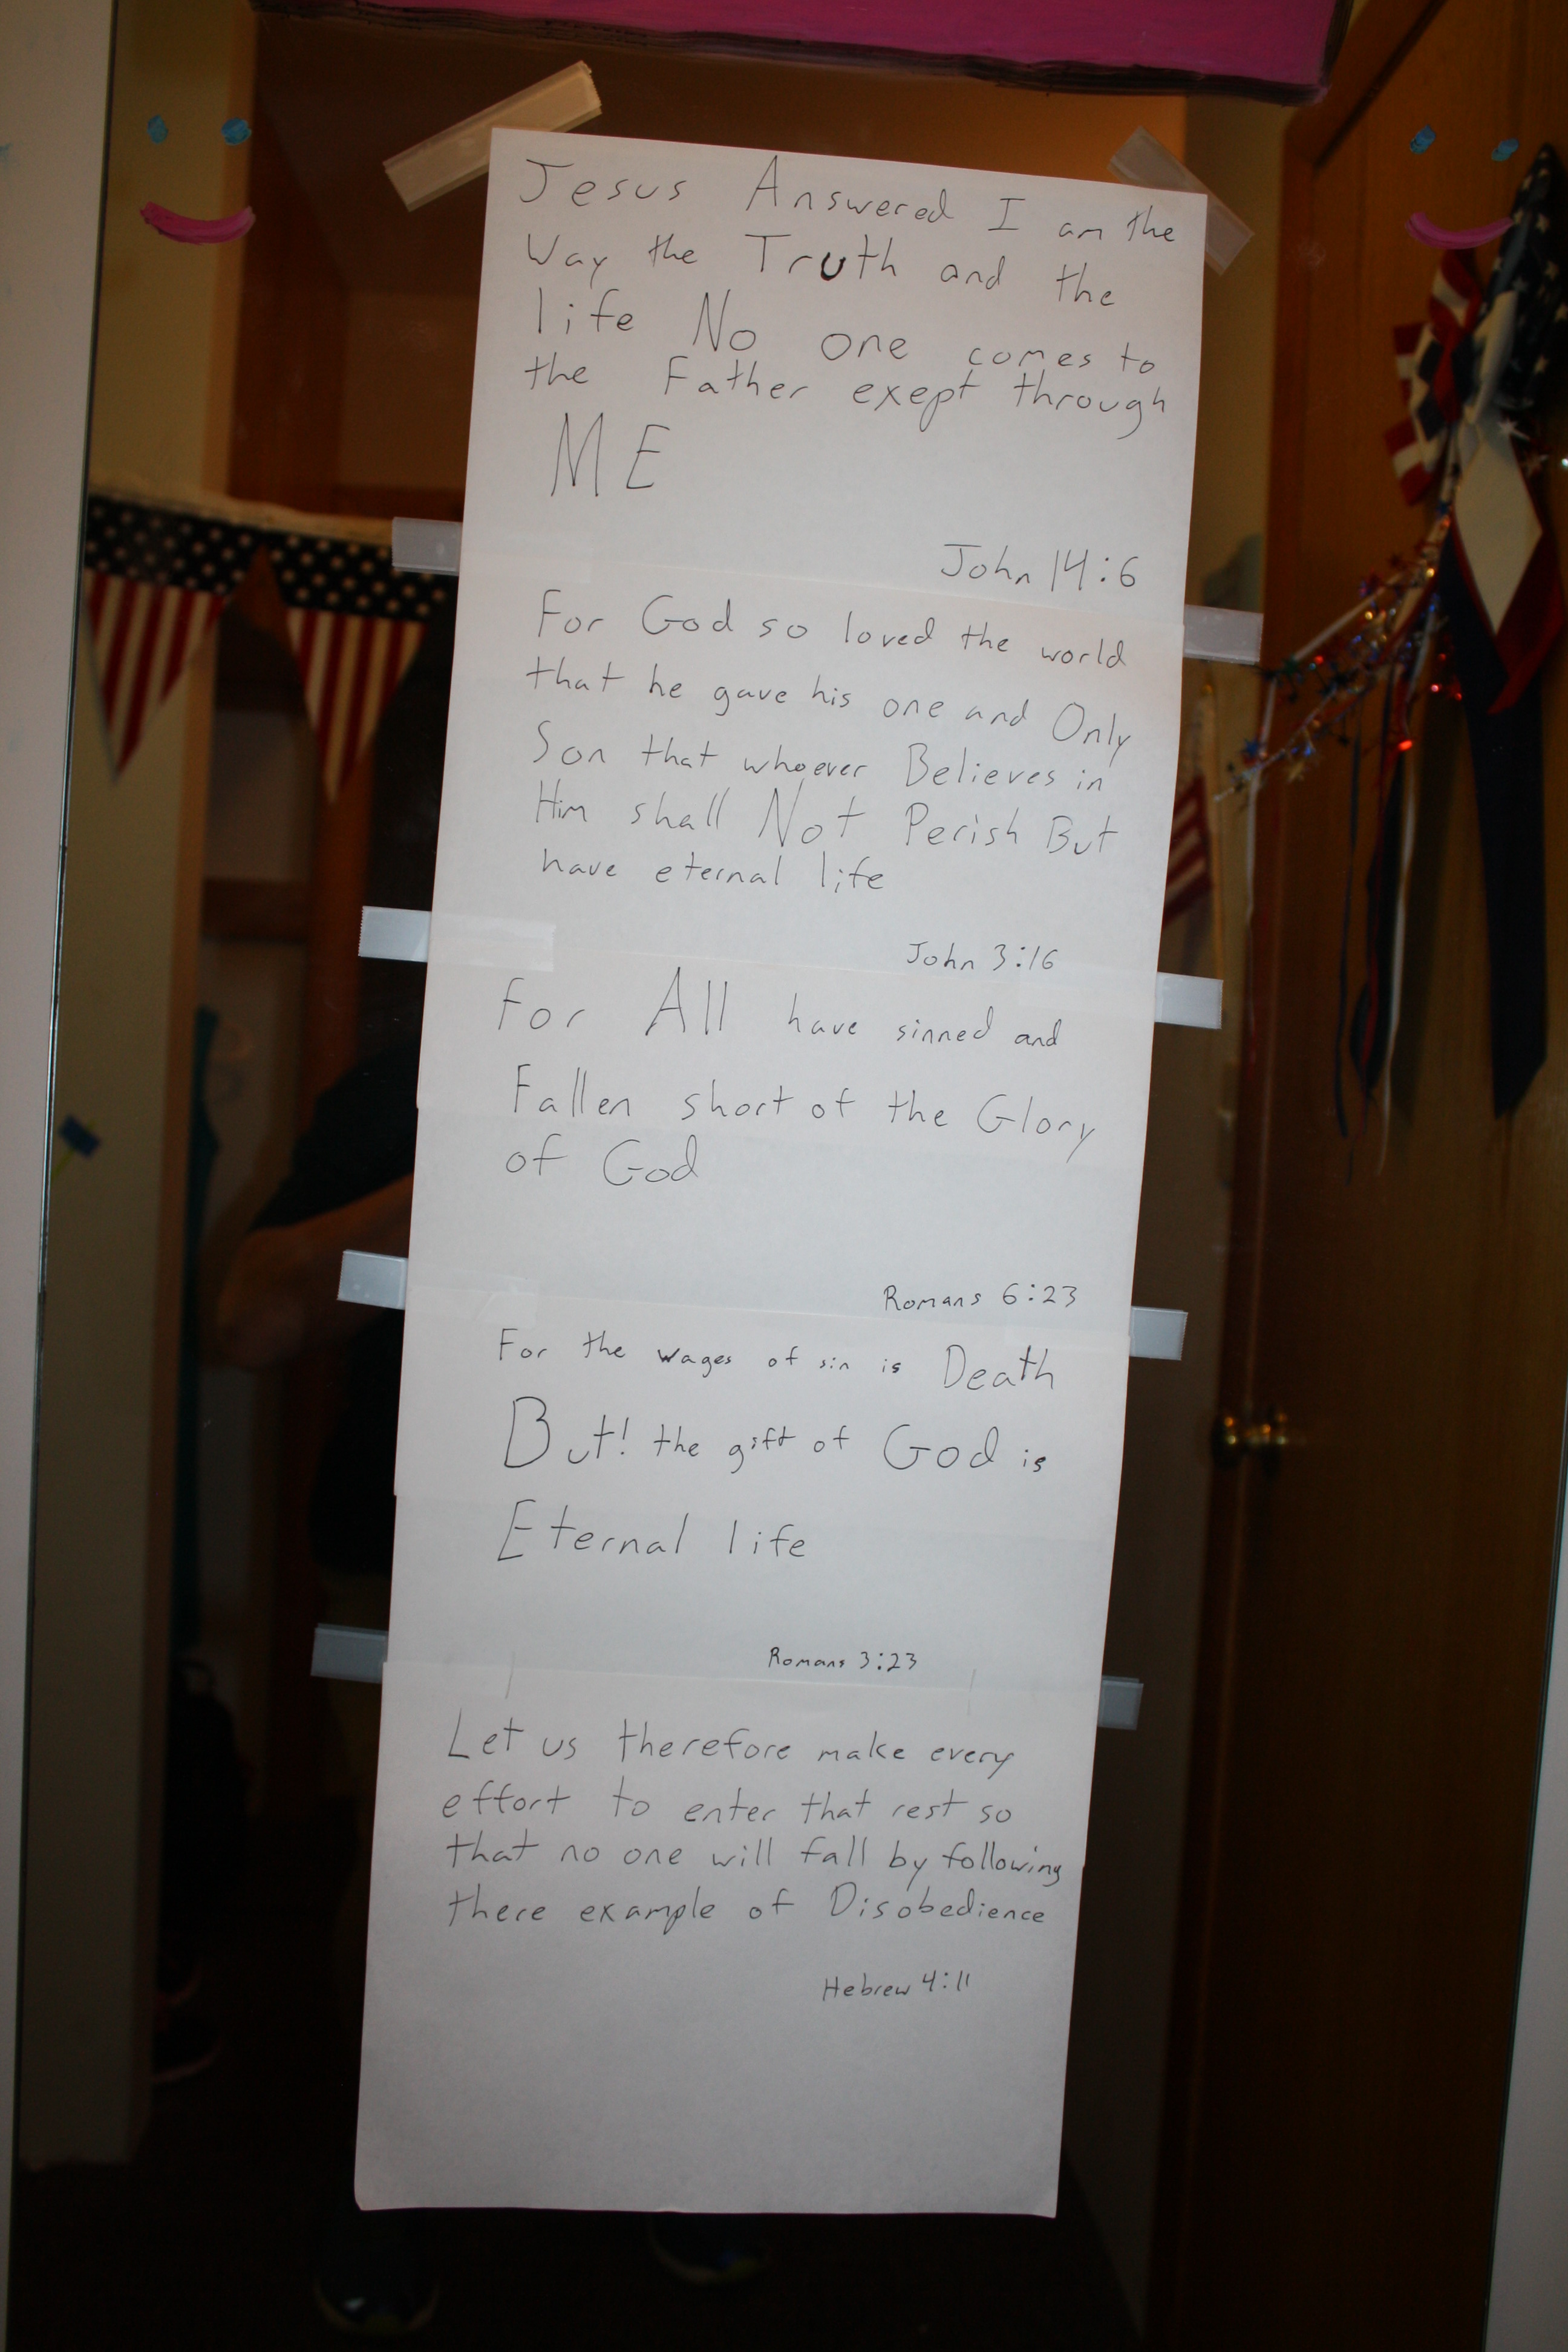 Jesus Answered I am the
Way the Truth and the
life No one comes to
the Father exept through
ME
John 14:6
For God so loved the world
that he gave his one and Only
Son that whoever Believes in
Him shall Not Perish But
have eternal life
John 3:16
For All have sinned and
Fallen short of the Glory
of God
Romans 6:23
For the wages of sin is Death
But! the gift of God is
Eternal life
Romans 3:23
Let us therefore make every
effort to enter that rest so
that no one will fall by following
there example of Disobedience
Hebrew 4:11